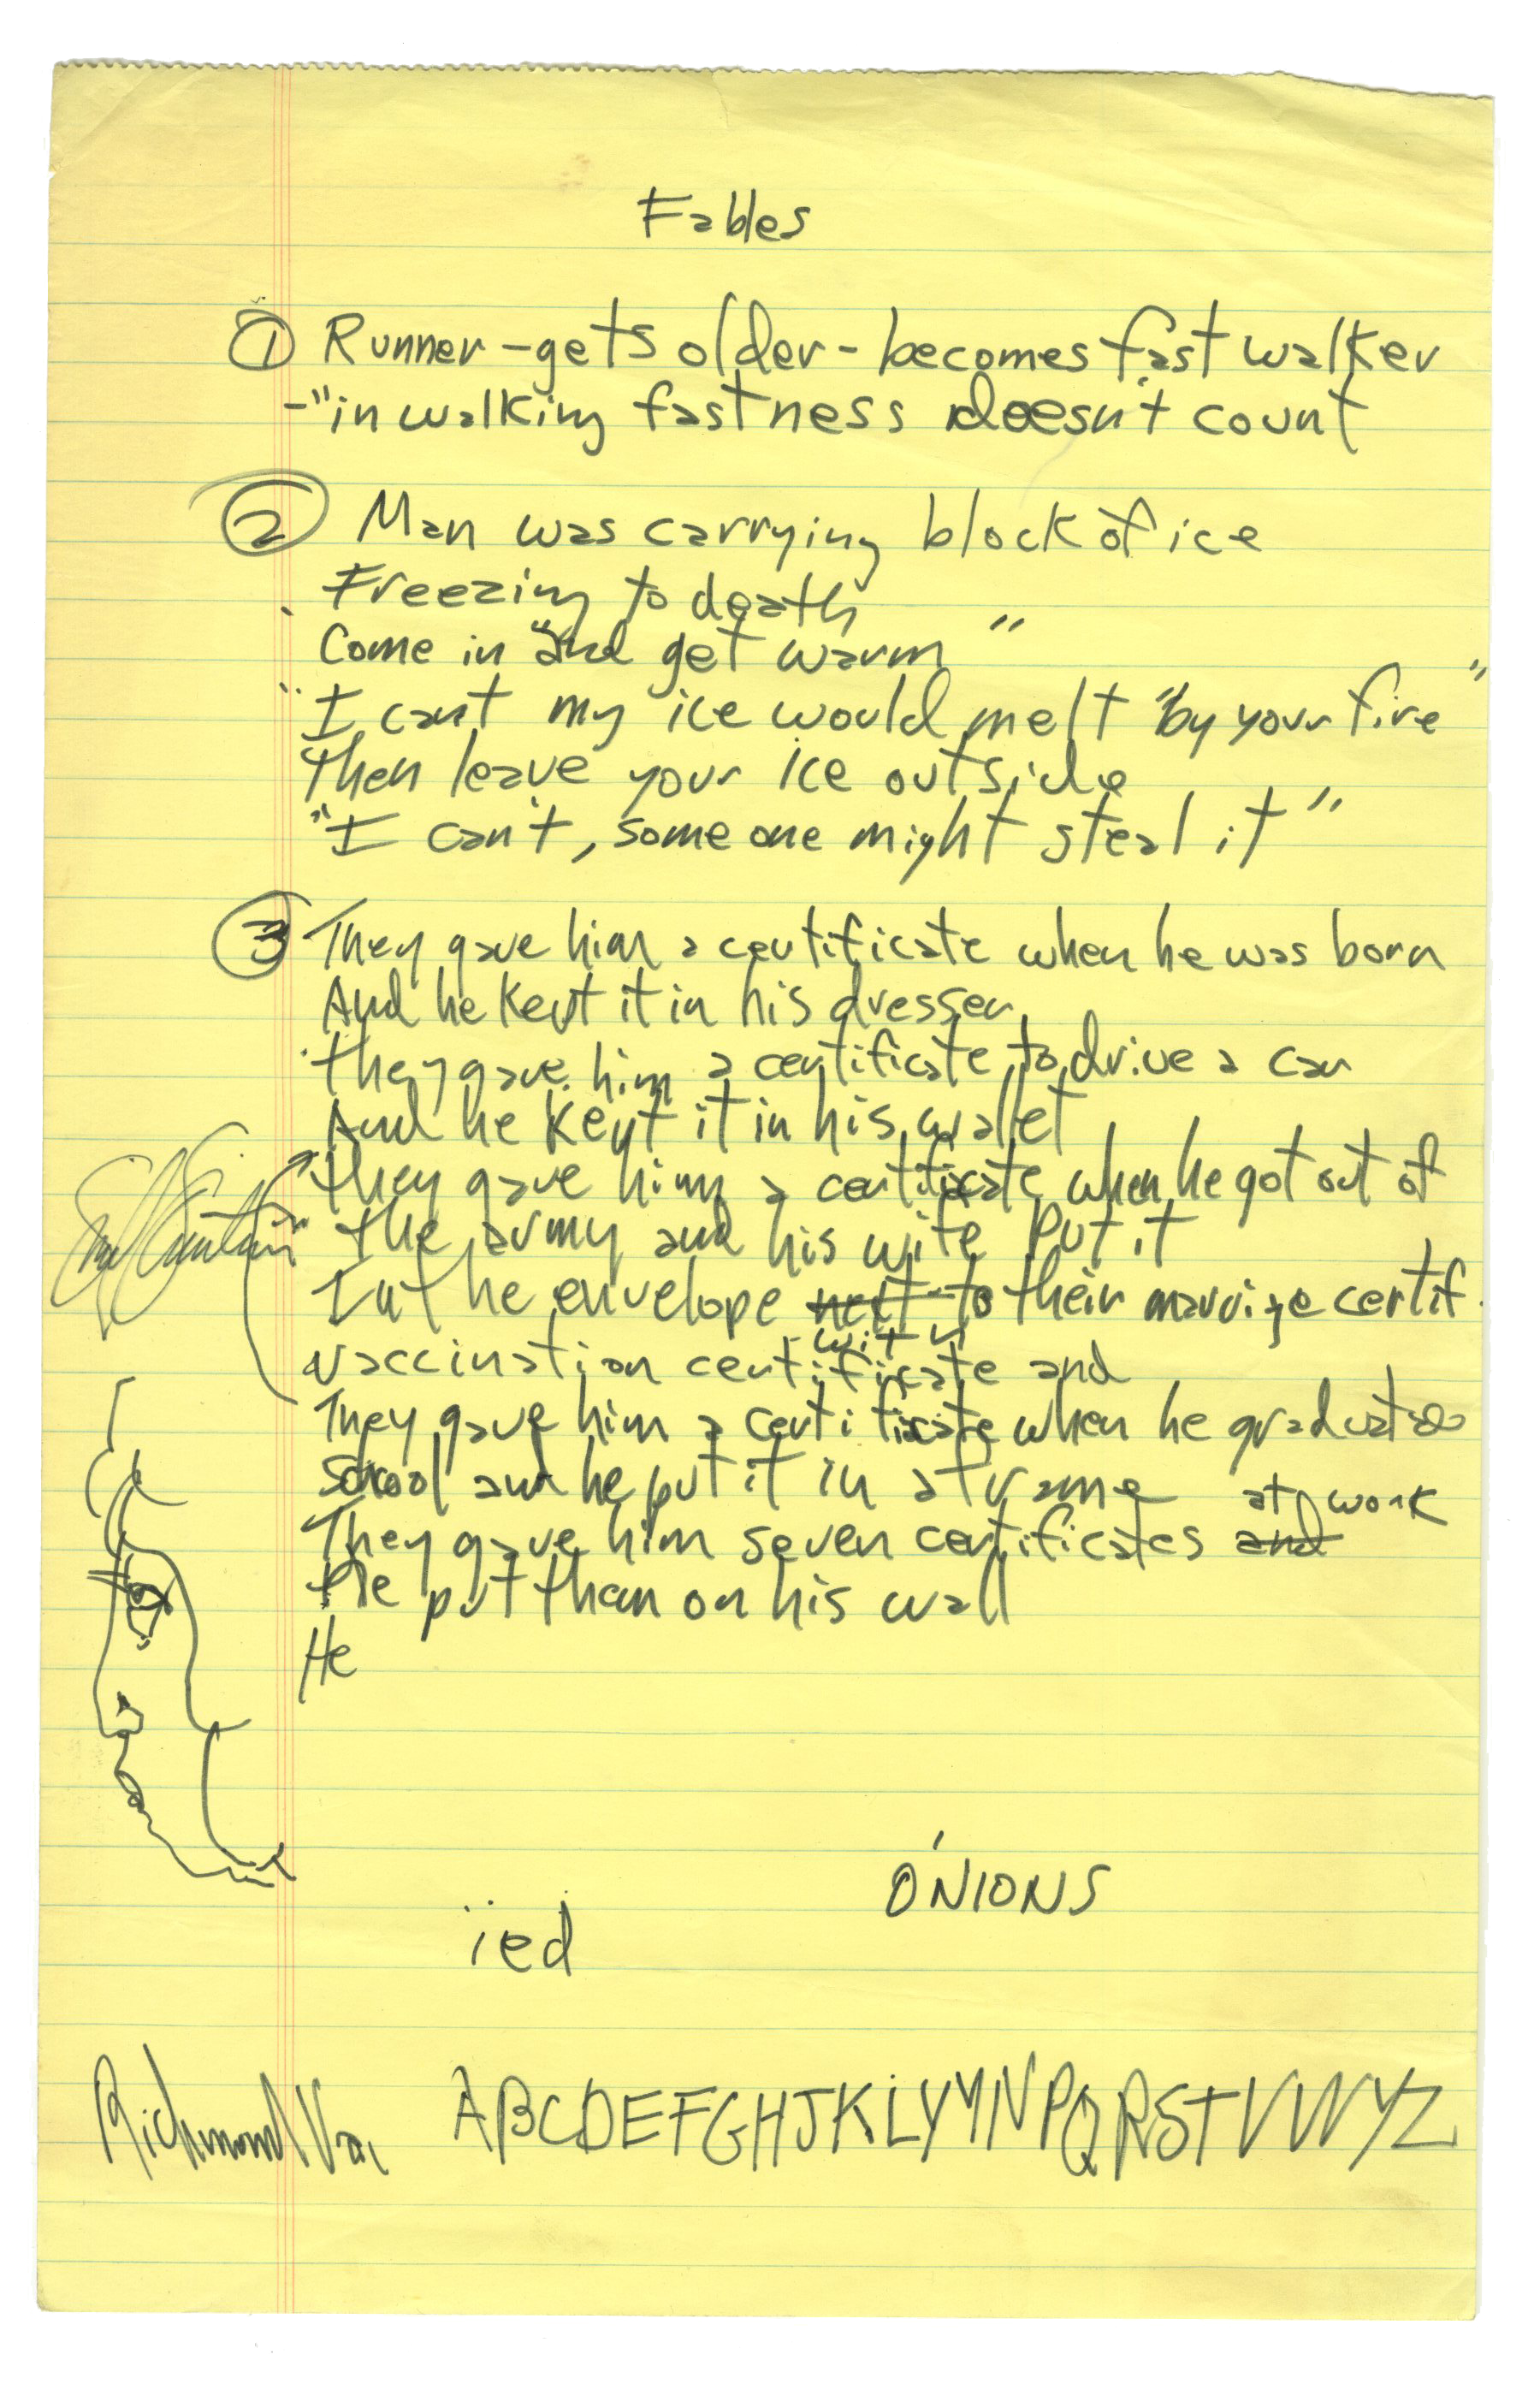 Fables
① Runner - gets older - becomes fast walker
- "in walking fastness doesn't count
② Man was carrying block of ice
Freezing to death
Come in "and get warm"
"I can't my ice would melt "by your fire"
Then leave your ice outside
"I can't, some one might steal it"
③ They gave him a certificate when he was born
And he kept it in his dresser
they gave him a certificate to drive a car
And he kept it in his wallet
they gave him a certificate when he got out of
the army and his wife put it
In the envelope next to their marrige certif.
with
vaccination certificate and
They gave him a certificate when he graduated
School and he put it in a frame
at work
They gave him seven certificates and
He put them on his wall
He
ONIONS
ied
Richmond Va.
ABCDEFGHJKLYMNPQRSTVWYZ